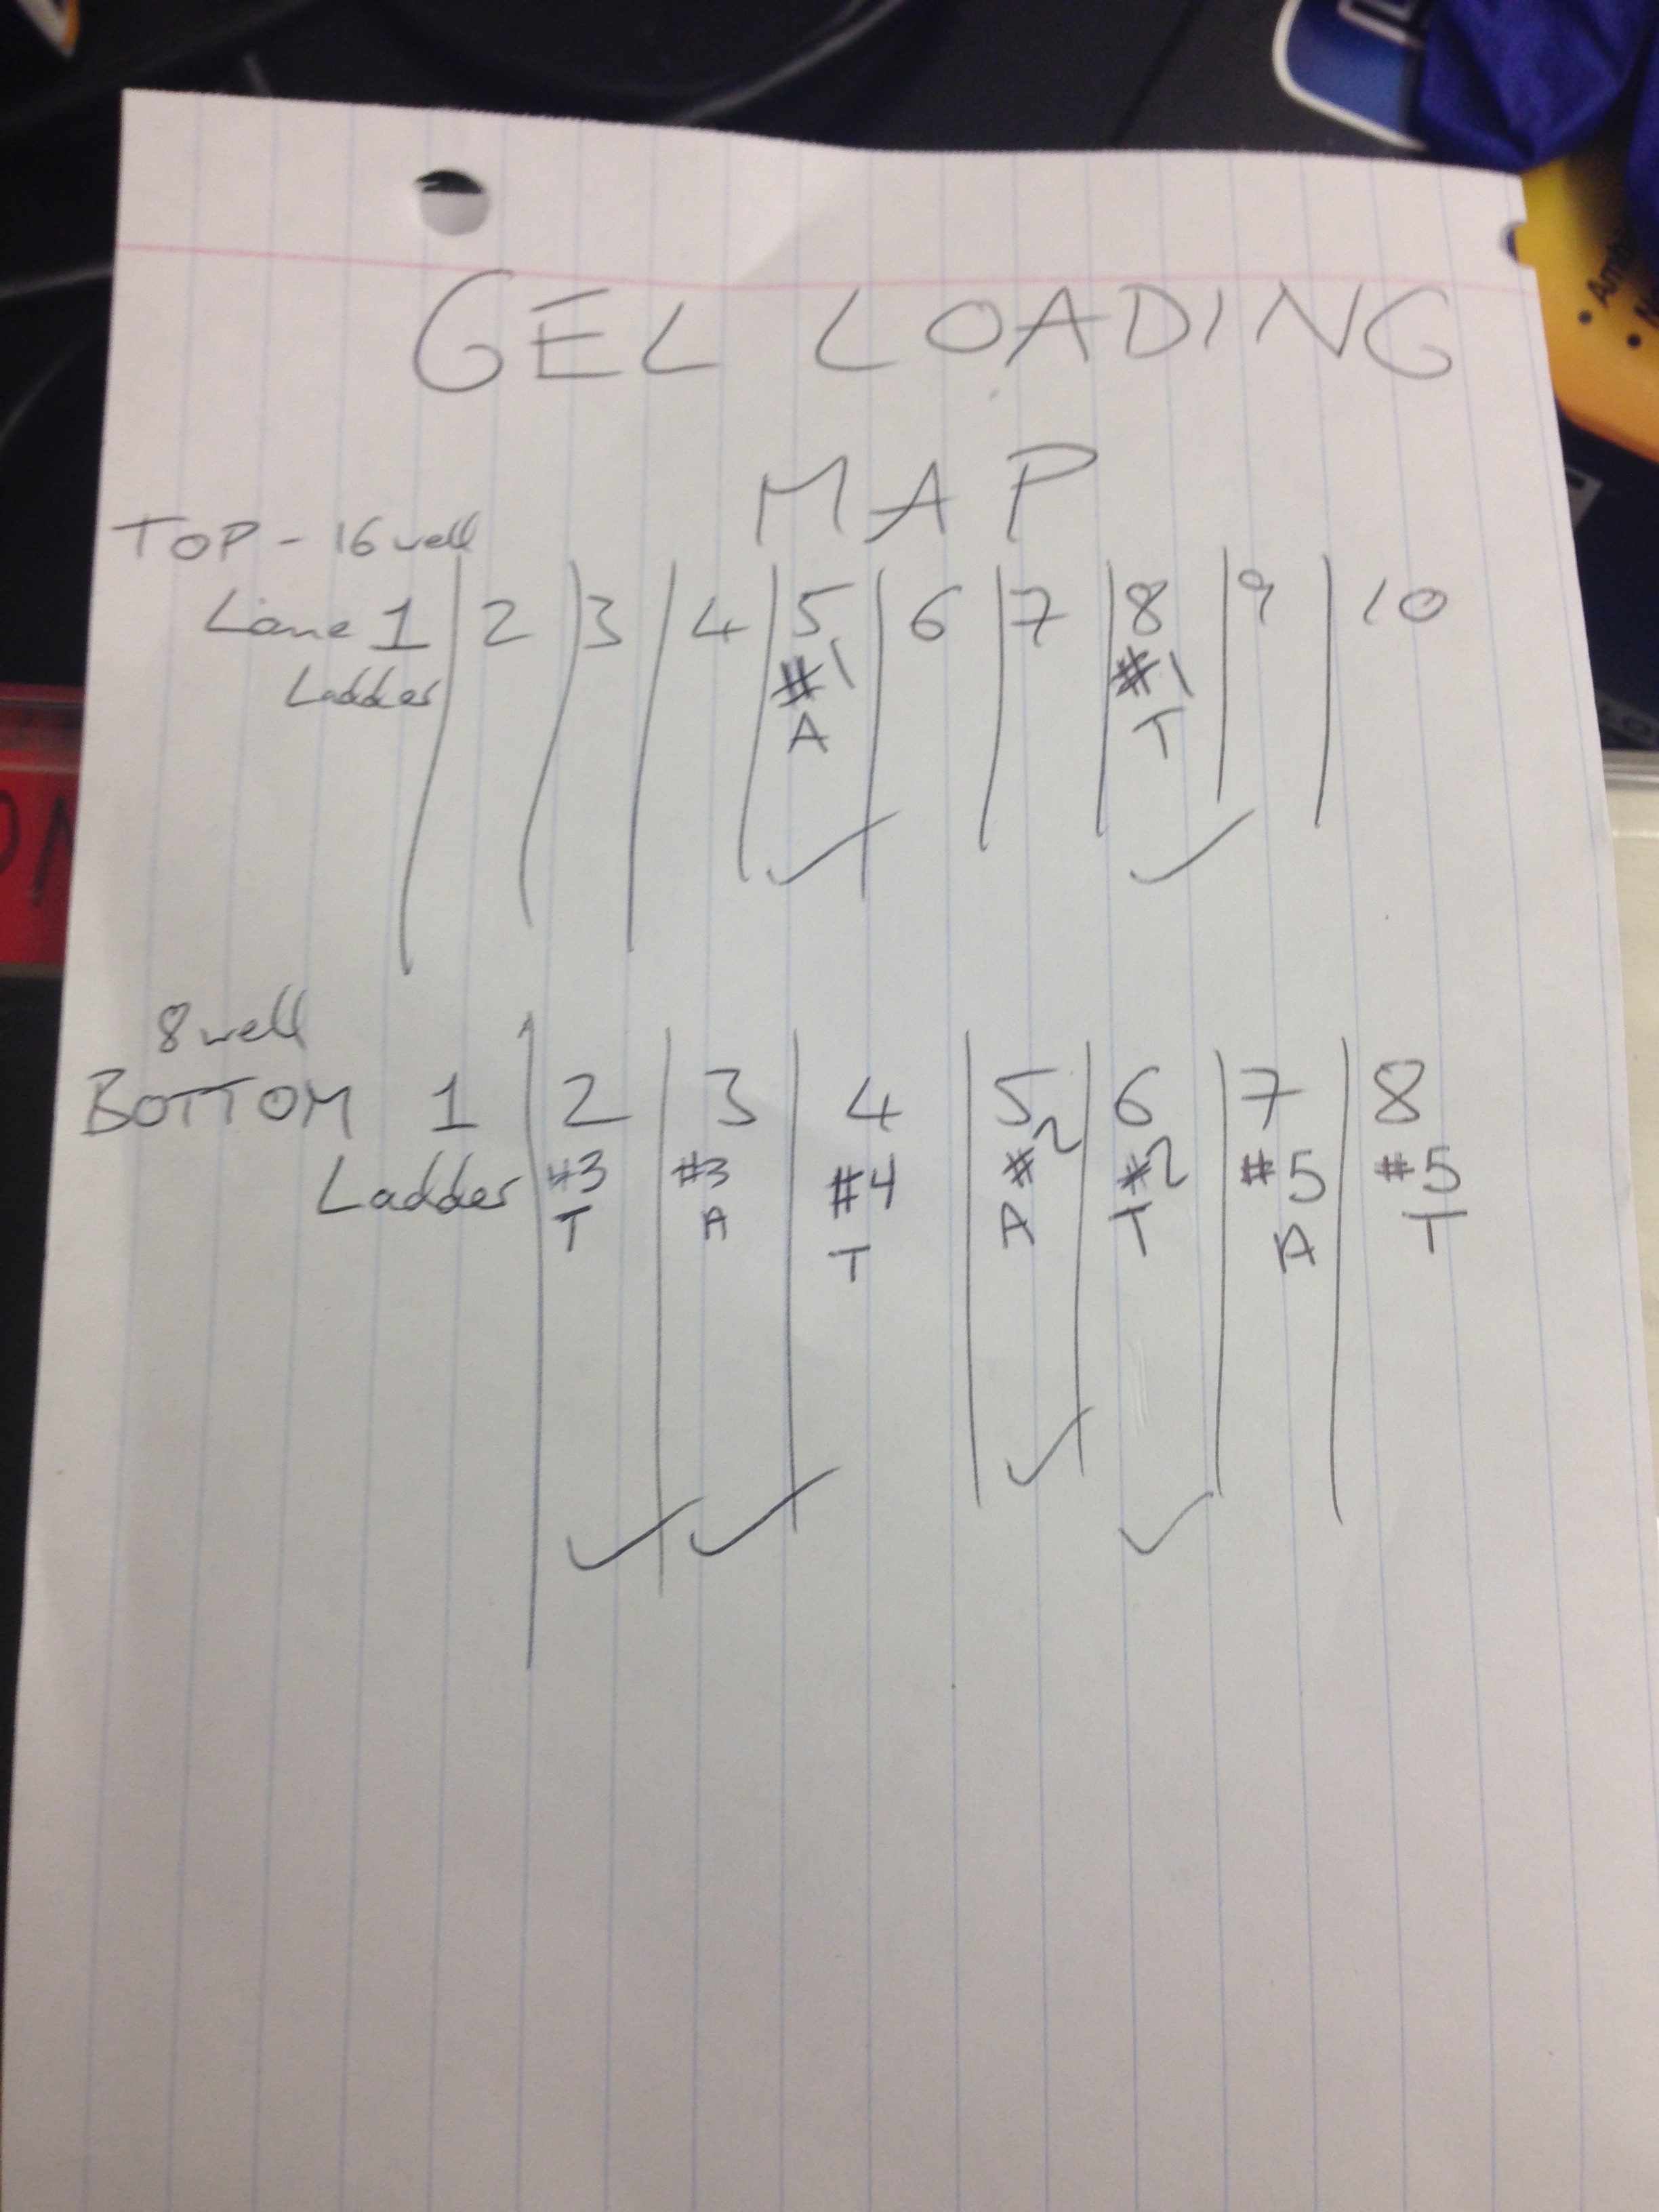 GEL LOADING
MAP
TOP - 16 well
Lane 1 2 3 4 5 6 7 8 9 10
Ladder #1 #1
A T
8 well
BOTTOM 1 2 3 4 5 6 7 8
Ladder #3 #3 #4 #2 #2 #5 #5
T A T A T A T